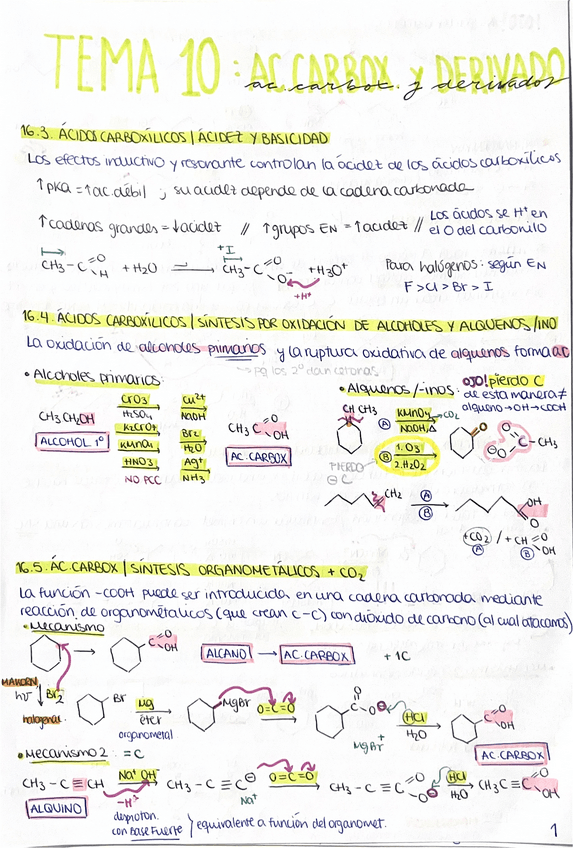 TEMA 10: AC.CARBOX Y DERIVADO
ac. carbox. y derivados
16.3. ÁCIDOS CARBOXÍLICOS | ÁCIDEZ Y BASICIDAD
Los efectos inductivo y resonante controlan la ácidez de los ácidos carboxílicos
↑pKa = ↑ac. débil ; su acidez depende de la cadena carbonada
↑cadenas grandes = ↓acidez // ↑grupos EN = ↑acidez // Los ácidos se H⁺ en
el O del carbonilo
+I
CH₃-C O H + H₂O → CH₃-C O O⁻ + H₃O⁺
+H⁺
Para halógenos: según EN
F > Cl > Br > I
16.4. ÁCIDOS CARBOXÍLICOS | SÍNTESIS POR OXIDACIÓN DE ALCOHOLES Y ALQUENOS/INO
La oxidación de alcoholes primarios y la ruptura oxidativa de alquenos forma ac
pq los 2º dan cetonas
• Alcoholes primarios:
CH₃CH₂OH
ALCOHOL 1º
CrO₃
H₂SO₄
K₂CrO₄
KMnO₄
HNO₃
NO PCC
Cu²⁺
NaOH
Br₂
H₂O
Ag⁺
NH₃
CH₃ C O OH
AC. CARBOX
• Alquenos/-inos:
OJO! pierdo C
de esta manera ≠
alqueno→OH→COOH
CH CH₃
A KMnO₄ CO₂
NaOH, Δ
B 1. O₃
2. H₂O₂
PIERDO
⊖ C
O
O ⊖O C-CH₃
CH₂
A
B
OH
O
+CO₂ / + CH O OH
A B
16.5. ÁC.CARBOX | SÍNTESIS ORGANOMETÁLICOS + CO₂
La función -COOH puede ser introducida en una cadena carbonada mediante
reacción de organométalicos (que crean C-C) con dióxido de carbono (al cual atacamos)
• Mecanismo
C O OH
ALCANO → AC. CARBOX + 1C
hν Br₂
halogenal.
Br Mg
éter
organometal
MgBr O=C=O
O C O⊖
MgBr⁺
HCl
H₂O
C O OH
AC. CARBOX
• Mecanismo 2: ≡C
CH₃-C≡CH Na⁺ OH⁻ CH₃-C≡C⊖ O=C=O CH₃-C≡C-C O O⊖ HCl H₂O CH₃C≡C-C O OH
-H⁺
Na⁺
ALQUINO
desproton.
con Base Fuerte } equivalente a función del organomet.
1